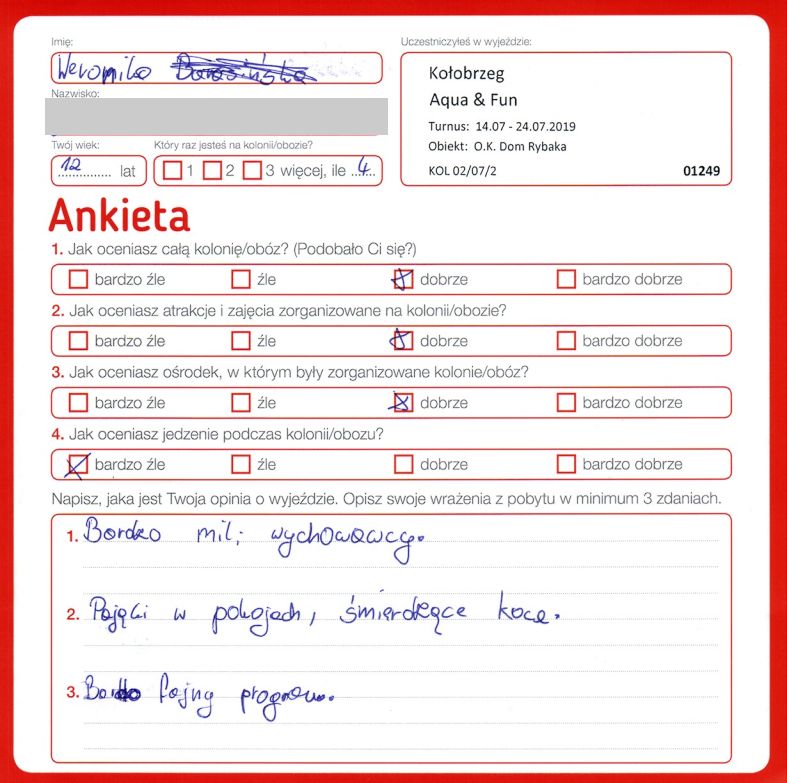 Imię:
Weronika
Nazwisko:
Twój wiek:
12 lat
Który raz jesteś na kolonii/obozie?
1 2 3 więcej, ile 4
Uczestniczyłeś w wyjeździe:
Kołobrzeg
Aqua & Fun
Turnus: 14.07 - 24.07.2019
Obiekt: O.K. Dom Rybaka
KOL 02/07/2 01249
Ankieta
1. Jak oceniasz całą kolonię/obóz? (Podobało Ci się?)
bardzo źle źle dobrze bardzo dobrze
2. Jak oceniasz atrakcje i zajęcia zorganizowane na kolonii/obozie?
bardzo źle źle dobrze bardzo dobrze
3. Jak oceniasz ośrodek, w którym były zorganizowane kolonie/obóz?
bardzo źle źle dobrze bardzo dobrze
4. Jak oceniasz jedzenie podczas kolonii/obozu?
bardzo źle źle dobrze bardzo dobrze
Napisz, jaka jest Twoja opinia o wyjeździe. Opisz swoje wrażenia z pobytu w minimum 3 zdaniach.
1. Bardzo mili wychowawcy.
2. Pająki w pokojach, śmierdzące koce.
3. fajny program.